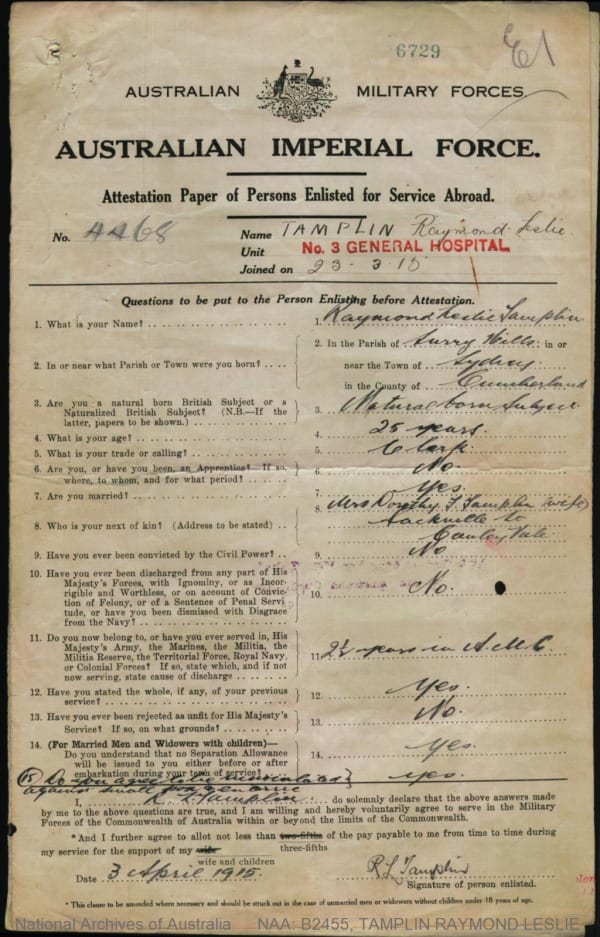 6729
E1
AUSTRALIAN MILITARY FORCES.
AUSTRALIAN IMPERIAL FORCE.
Attestation Paper of Persons Enlisted for Service Abroad.
No. 4468 Name TAMPLIN Raymond Leslie
Unit No. 3 GENERAL HOSPITAL
Joined on 23-3-15
Questions to be put to the Person Enlisting before Attestation.
1. What is your Name? 1. Raymond Leslie Tamplin
2. In or near what Parish or Town were you born? 2. In the Parish of Surry Hills in or
near the Town of Sydney
in the County of Cumberland
3. Are you a natural born British Subject or a
Naturalized British Subject? (N.B.—If the
latter, papers to be shown.) 3. Natural born Subject
4. What is your age? 4. 25 years
5. What is your trade or calling? 5. Clerk
6. Are you, or have you been, an Apprentice? If so,
where, to whom, and for what period? 6. No.
7. Are you married? 7. Yes.
8. Who is your next of kin? (Address to be stated) 8. Mrs Dorothy F. Tamplin (wife)
Sackville St
Canley Vale
9. Have you ever been convicted by the Civil Power? 9. No
10. Have you ever been discharged from any part of His
Majesty's Forces, with Ignominy, or as Incor-
rigible and Worthless, or on account of Convic-
tion of Felony, or of a Sentence of Penal Servi-
tude, or have you been dismissed with Disgrace
from the Navy? 10. No.
11. Do you now belong to, or have you ever served in, His
Majesty's Army, the Marines, the Militia, the
Militia Reserve, the Territorial Force, Royal Navy,
or Colonial Forces? If so, state which, and if not
now serving, state cause of discharge 11. 2½ years in A.M.C.
12. Have you stated the whole, if any, of your previous
service? 12. Yes.
13. Have you ever been rejected as unfit for His Majesty's
Service? If so, on what grounds? 13. No.
14. (For Married Men and Widowers with children)—
Do you understand that no Separation Allowance
will be issued to you either before or after
embarkation during your term of service? 14. Yes.
(15) Do you agree to be
against small pox Yes.
I, R. L. Tamplin do solemnly declare that the above answers made
by me to the above questions are true, and I am willing and hereby voluntarily agree to serve in the Military
Forces of the Commonwealth of Australia within or beyond the limits of the Commonwealth.
*And I further agree to allot not less than two-fifths of the pay payable to me from time to time during
three-fifths
my service for the support of my wife
wife and children
Date 3 April 1915. R L Tamplin
Signature of person enlisted.
* This clause to be amended where necessary and should be struck out in the case of unmarried men or widowers without children under 18 years of age.
National Archives of Australia NAA: B2455, TAMPLIN RAYMOND LESLIE